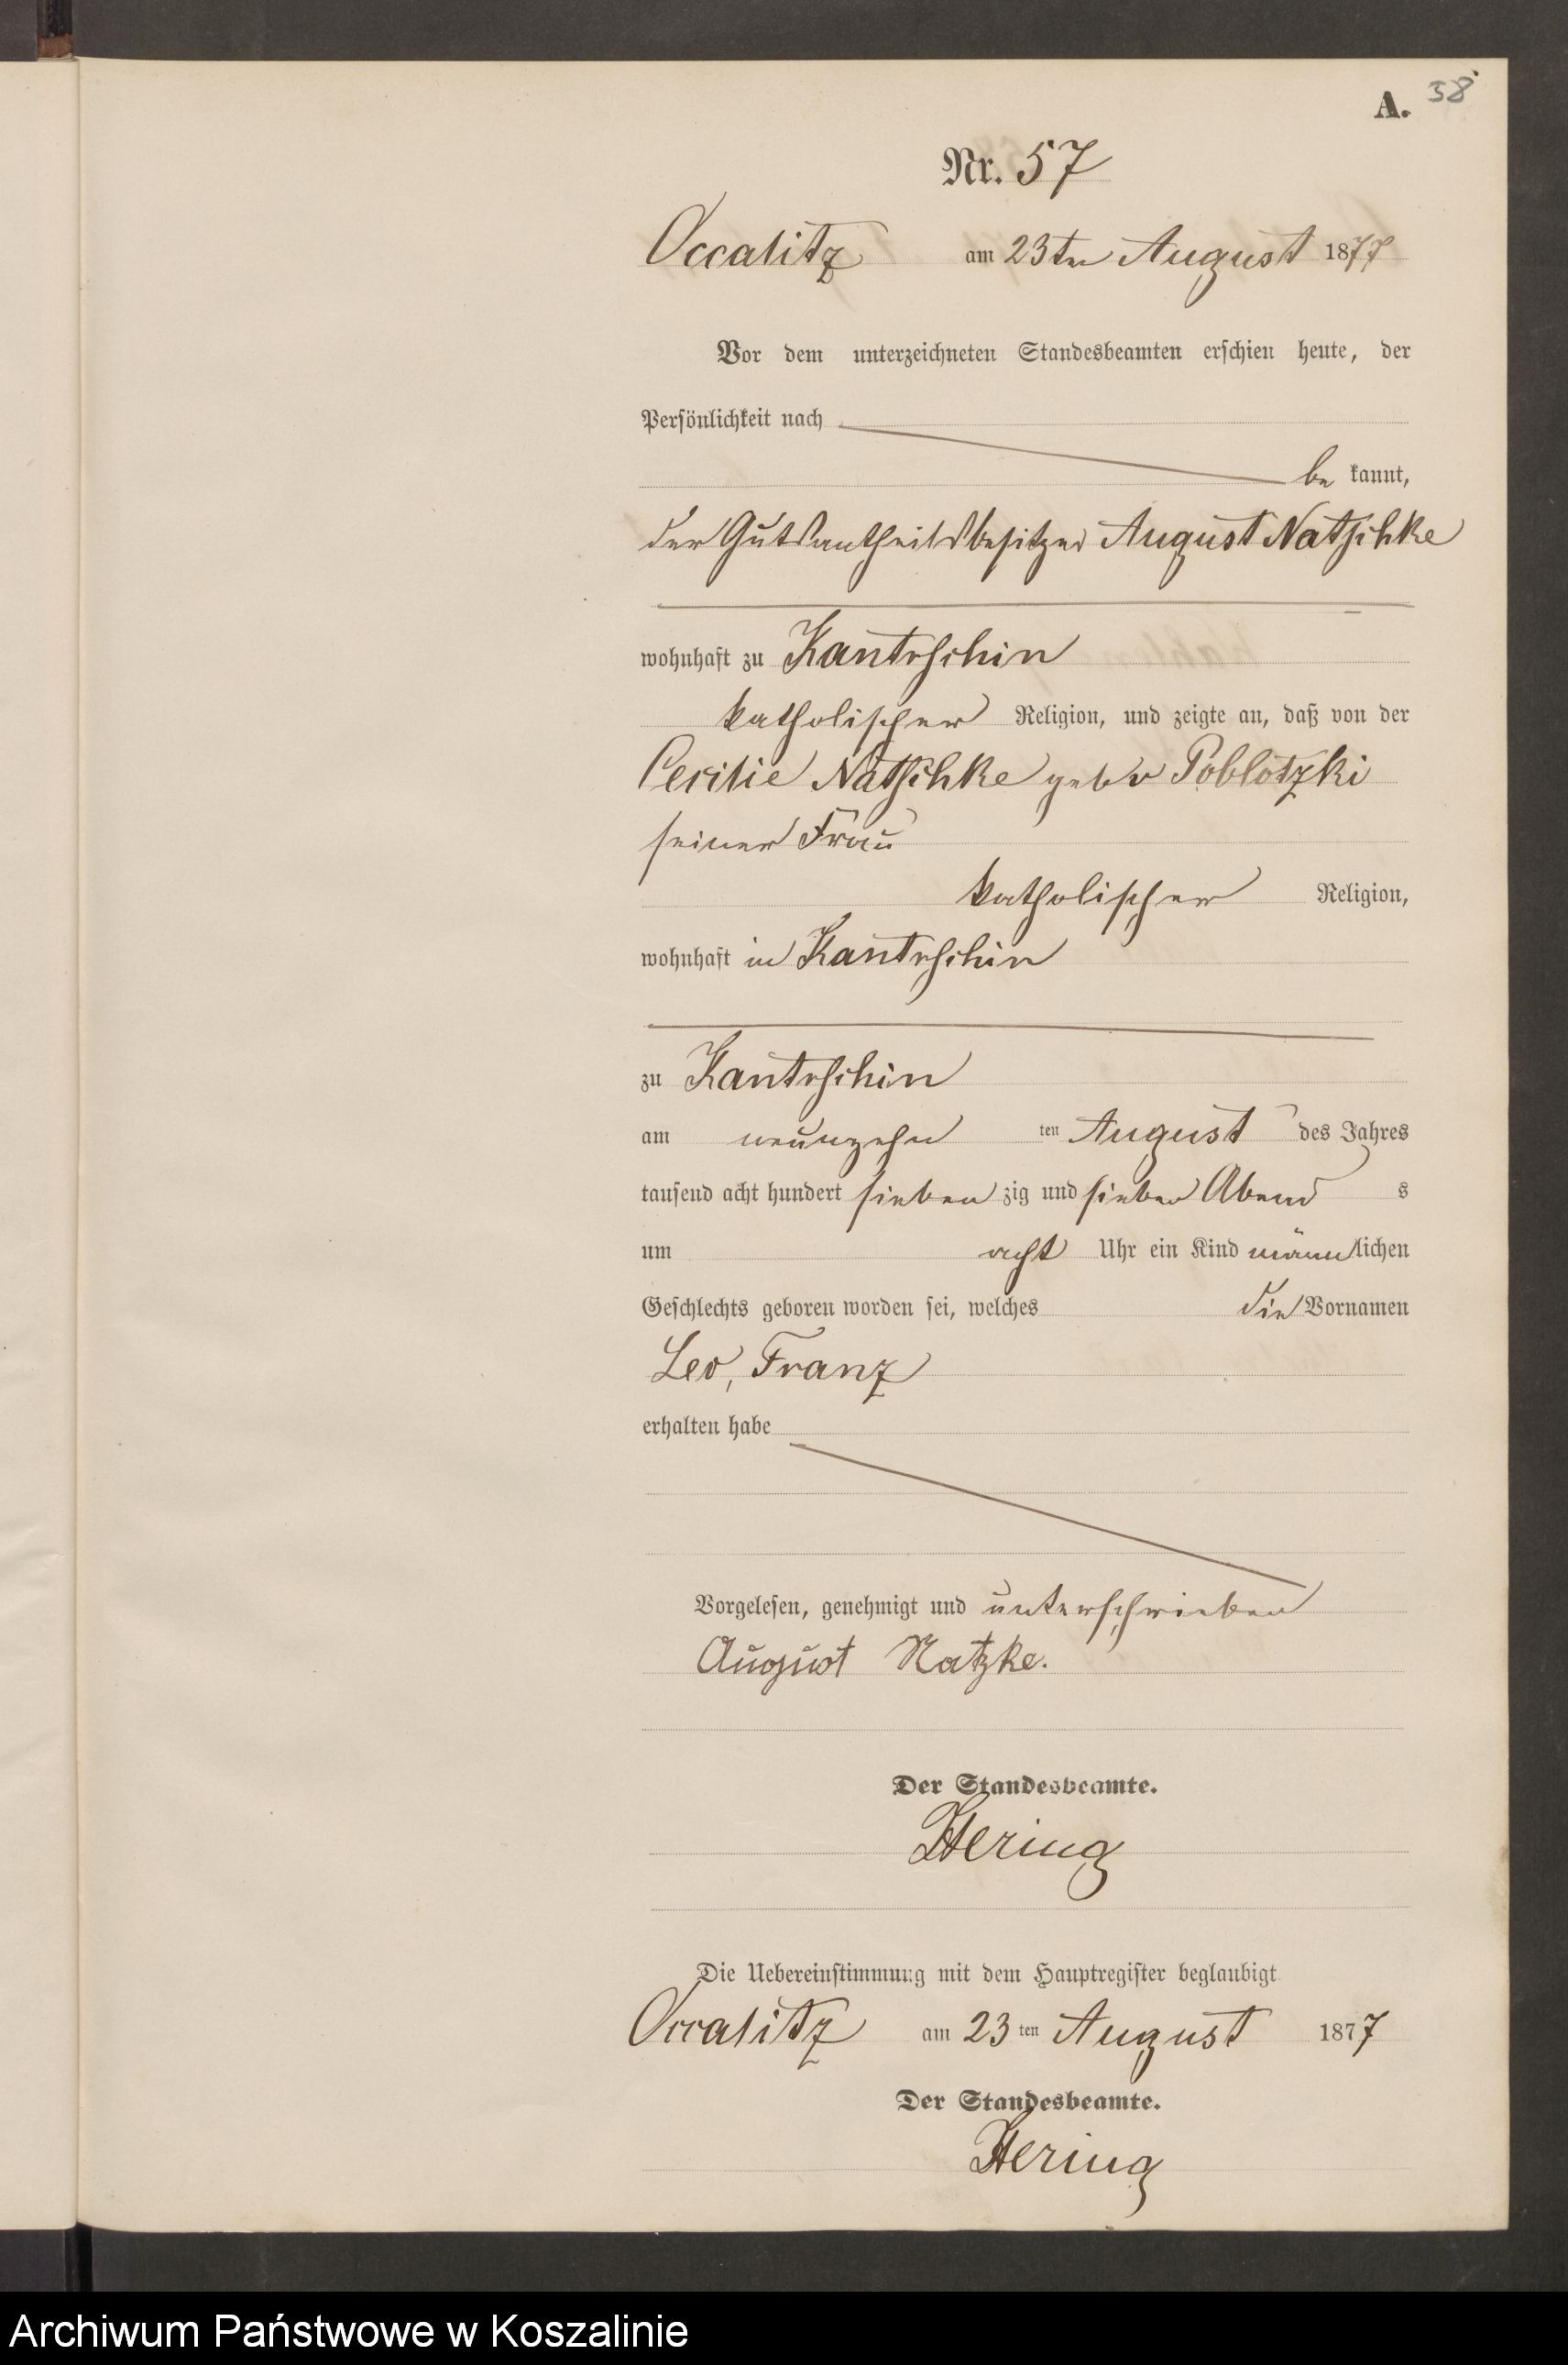 A. 58
Nr. 57
Occalitz am 23ten August 1877
Vor dem unterzeichneten Standesbeamten erschien heute, der
Persönlichkeit nach
be kannt,
der Gutsantheilsbesitzer August Natschke
wohnhaft zu Kantrschin
katholischer Religion, und zeigte an, daß von der
Cecilie Natschke geb v Poblotzki
seiner Frau
katholischer Religion,
wohnhaft in Kantrschin
zu Kantrschin
am neunzehn ten August des Jahres
tausend acht hundert sieben zig und sieben Abend s
um acht Uhr ein Kind männlichen
Geschlechts geboren worden sei, welches die Vornamen
Leo, Franz
erhalten habe
Vorgelesen, genehmigt und unterschrieben
August Natzke.
Der Standesbeamte.
Hering
Die Uebereinstimmung mit dem Hauptregister beglaubigt
Occalitz am 23 ten August 1877
Der Standesbeamte.
Hering
Archiwum Państwowe w Koszalinie